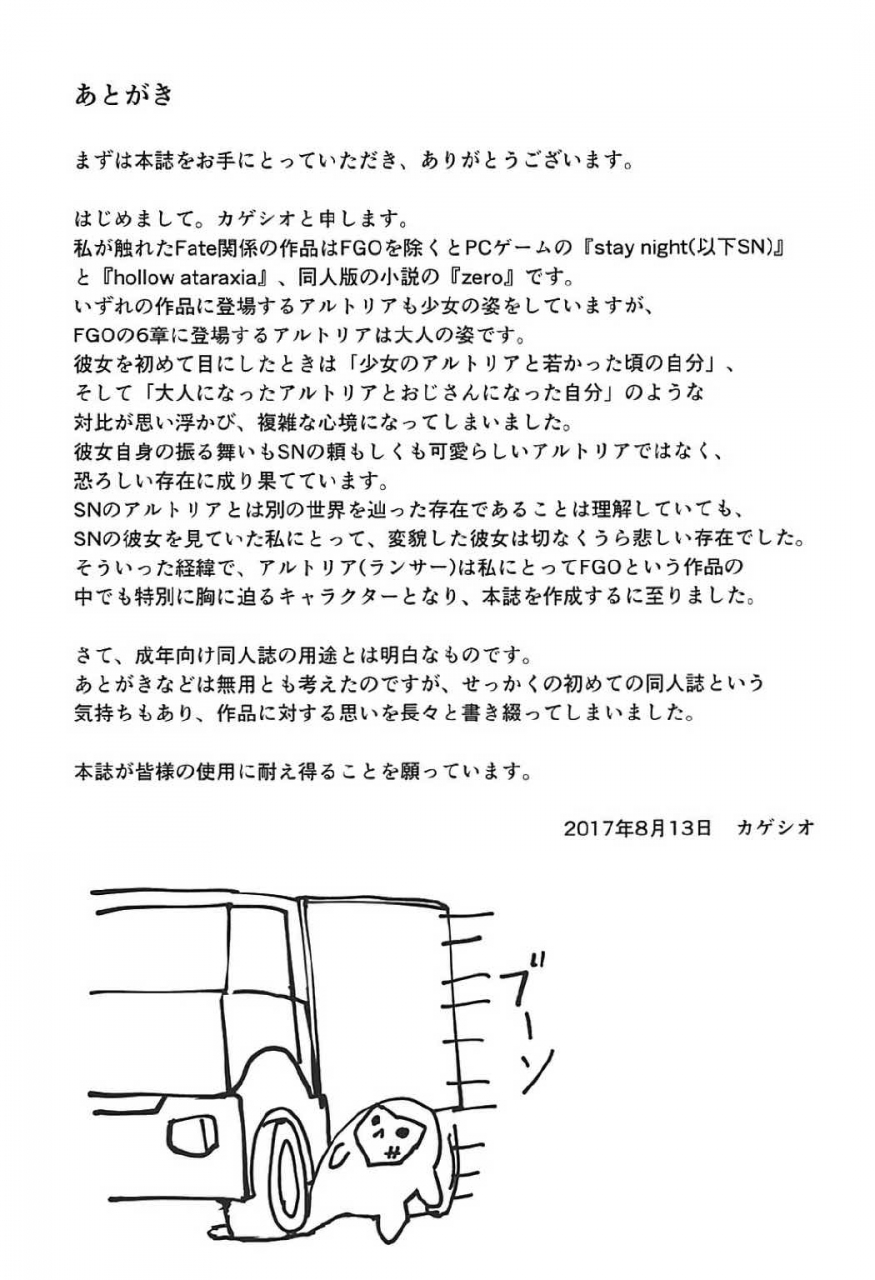 あとがき
まずは本誌をお手にとっていただき、ありがとうございます。
はじめまして。カゲシオと申します。
私が触れたFate関係の作品はFGOを除くとPCゲームの『stay night(以下SN)』
と『hollow ataraxia』、同人版の小説の『zero』です。
いずれの作品に登場するアルトリアも少女の姿をしていますが、
FGOの6章に登場するアルトリアは大人の姿です。
彼女を初めて目にしたときは「少女のアルトリアと若かった頃の自分」、
そして「大人になったアルトリアとおじさんになった自分」のような
対比が思い浮かび、複雑な心境になってしまいました。
彼女自身の振る舞いもSNの頼もしくも可愛らしいアルトリアではなく、
恐ろしい存在に成り果てています。
SNのアルトリアとは別の世界を辿った存在であることは理解していても、
SNの彼女を見ていた私にとって、変貌した彼女は切なくうら悲しい存在でした。
そういった経緯で、アルトリア(ランサー)は私にとってFGOという作品の
中でも特別に胸に迫るキャラクターとなり、本誌を作成するに至りました。
さて、成年向け同人誌の用途とは明白なものです。
あとがきなどは無用とも考えたのですが、せっかくの初めての同人誌という
気持ちもあり、作品に対する思いを長々と書き綴ってしまいました。
本誌が皆様の使用に耐え得ることを願っています。
2017年8月13日　カゲシオ
ブーン